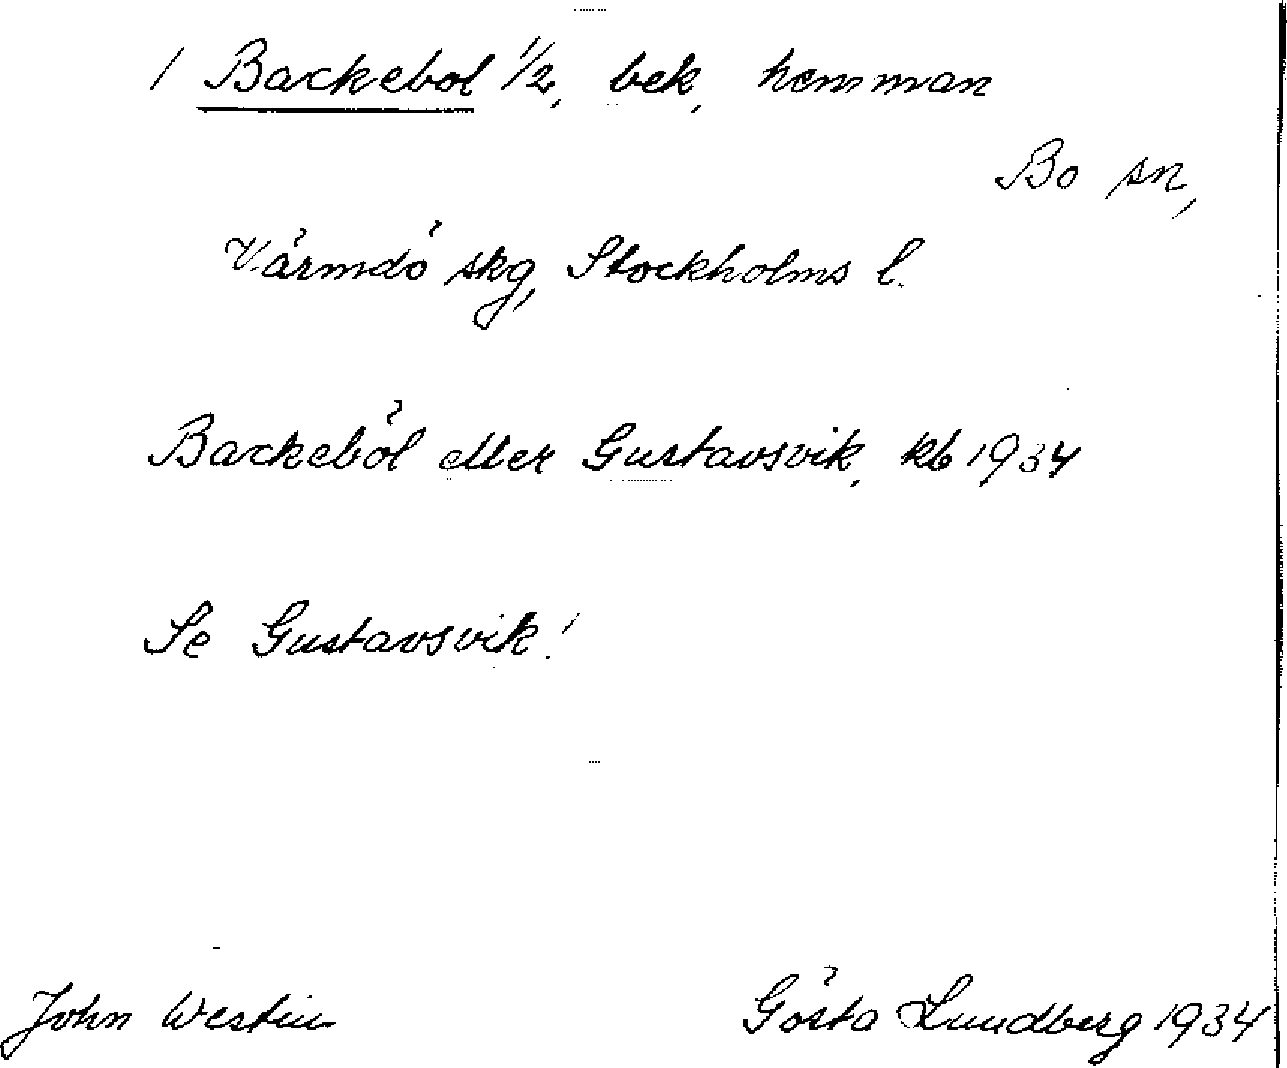 / Backebol 1/2, bek, hemman
Bo sn,
Värmdö skg, Stockholms l.
Backeböl eller Gustavsvik, kb 1934
Se Gustavsvik!
John Westin
Gösta Lundberg 1934